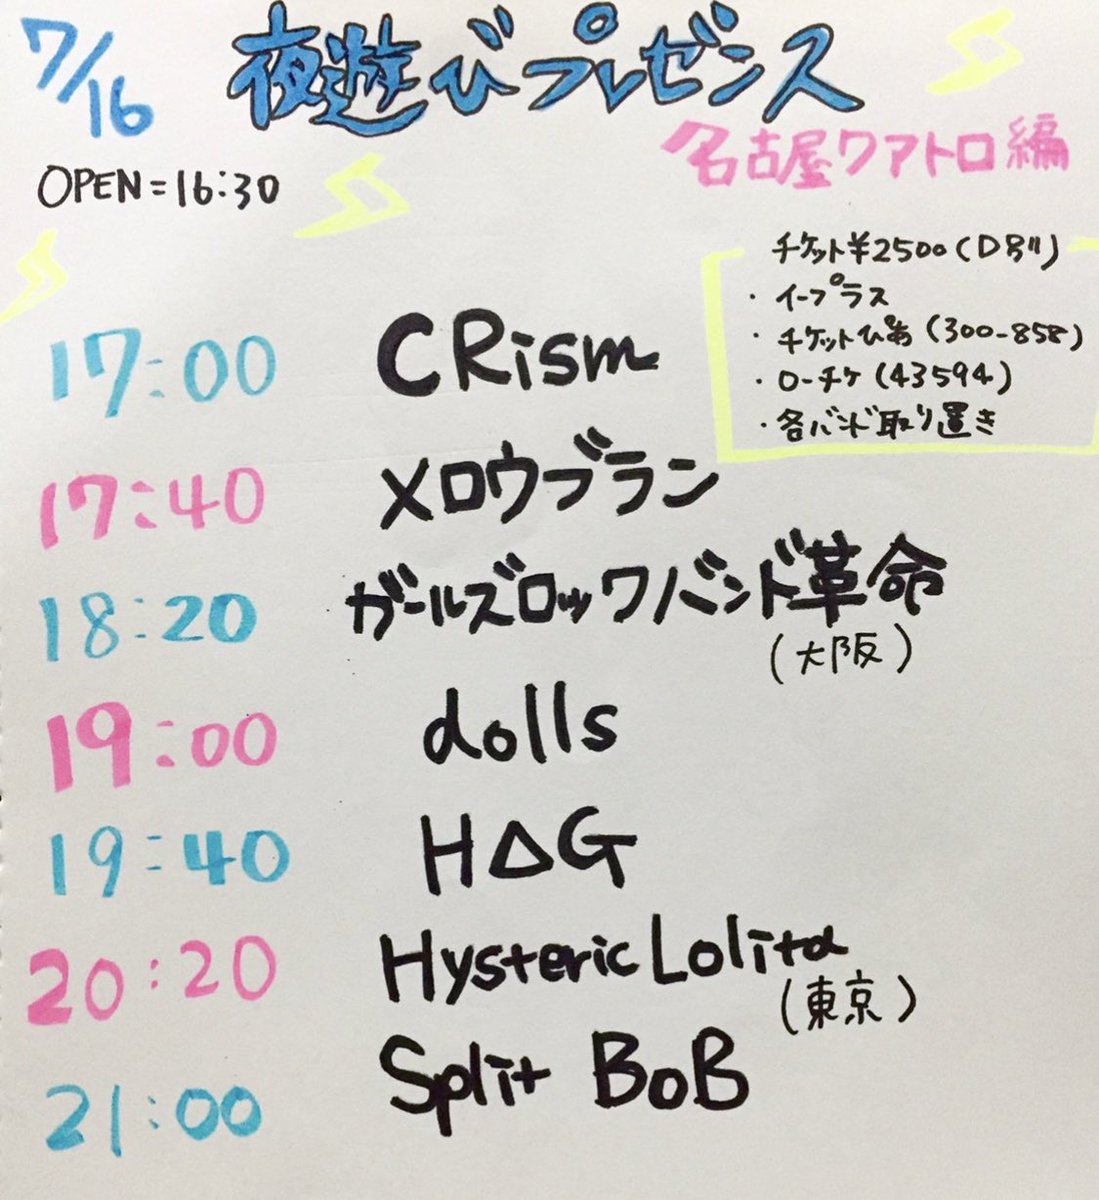 7/16
夜遊びプレゼンス
名古屋クアトロ編
OPEN=16:30
チケット¥2500(D別)
・イープラス
・チケットぴあ(300-858)
・ローチケ(43594)
・各バンド取り置き
17:00 CRism
17:40 メロウブラン
18:20 ガールズロックバンド革命
(大阪)
19:00 dolls
19:40 HΔG
20:20 Hysteric Lolita
(東京)
21:00 Split BoB